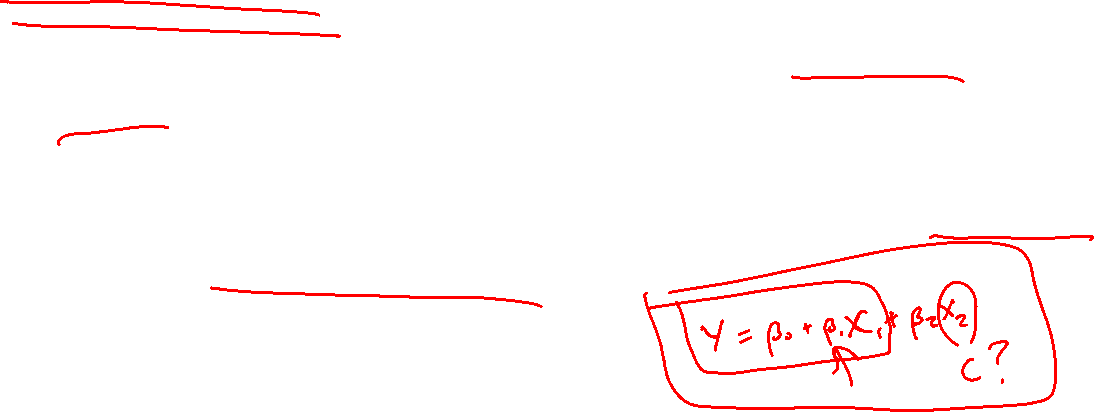 Y = β₀ + β₁X₁ + β₂X₂
C?